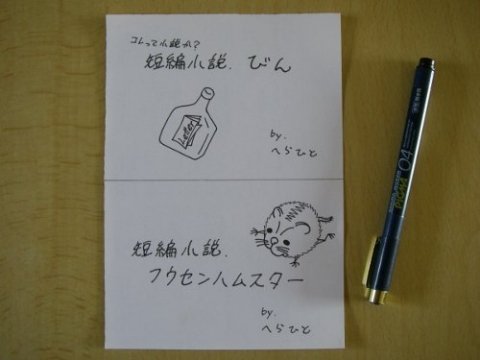 コレって小説か?
短編小説. びん
Letter
by.
へらひと
短編小説.
フウセンハムスター
by.
へらひと
PIGMA 04